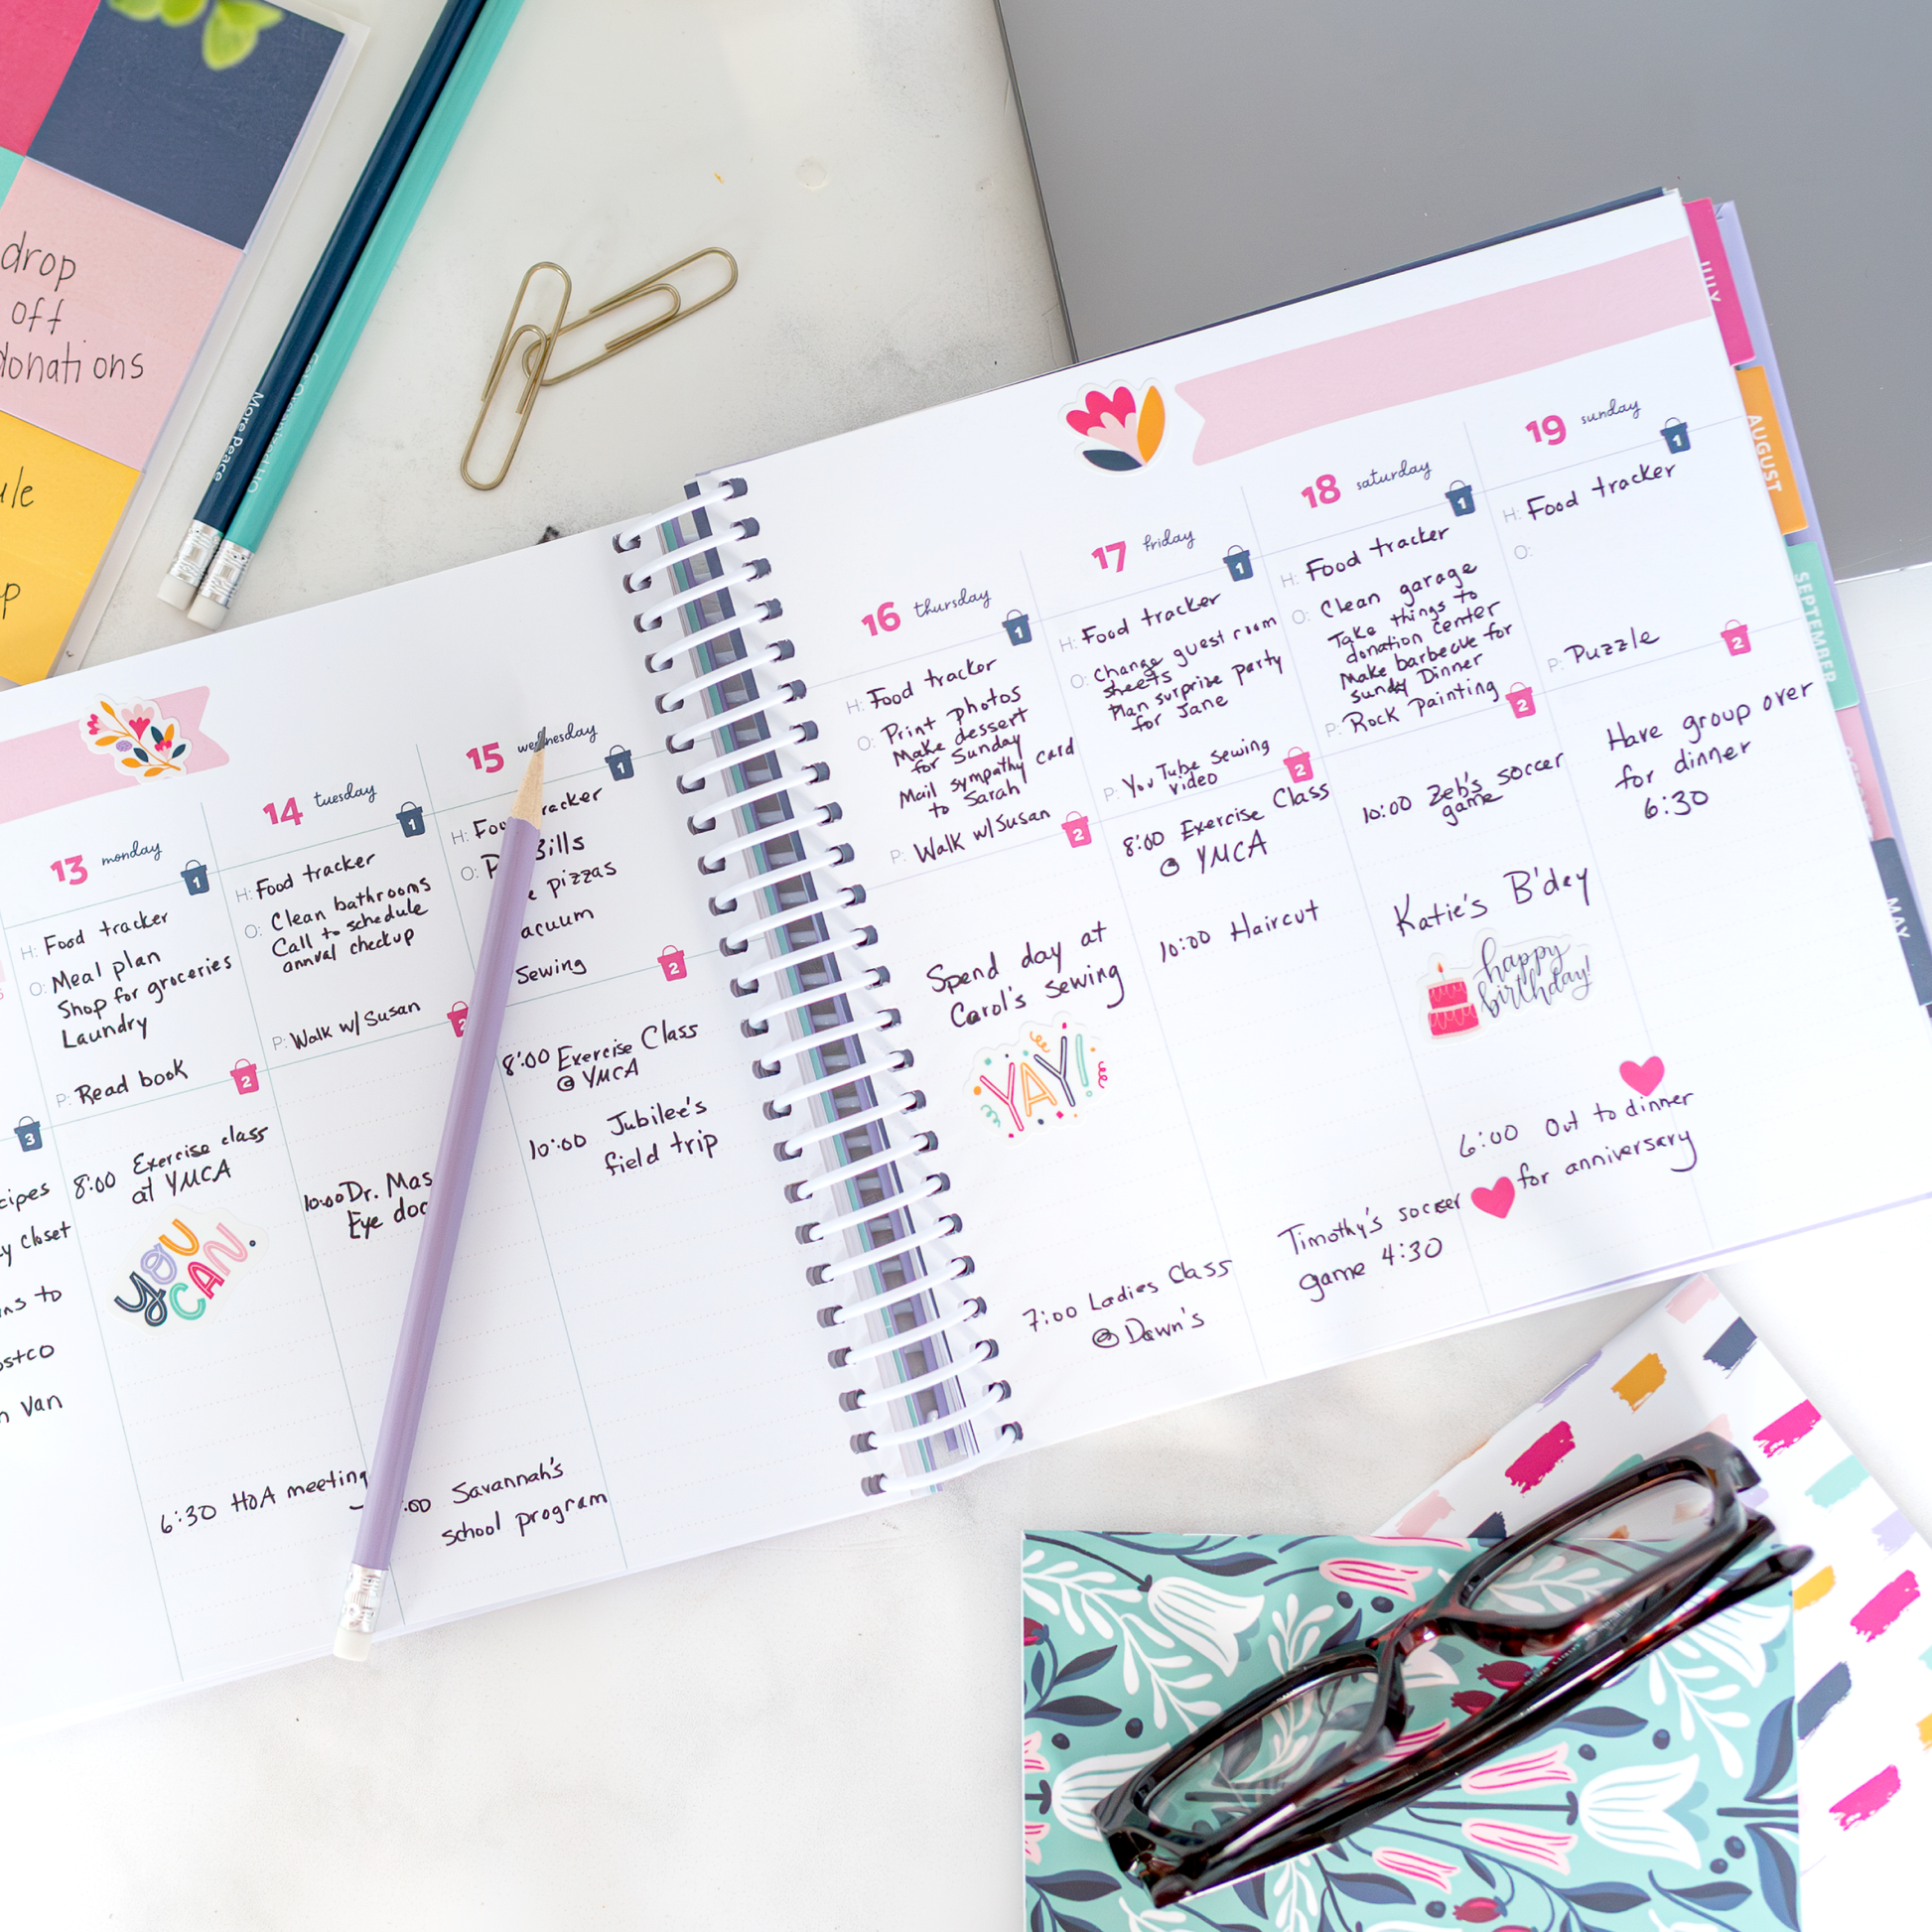 drop
off
donations
More Peace
13 monday
1
H: Food tracker
O: Meal plan
Shop for groceries
Laundry
P: Read book
2
8:00 Exercise class
at YMCA
YOU
CAN.
6:30 HOA meeting
3
closet
to
Van
14 tuesday
1
H: Food tracker
O: Clean bathrooms
Call to schedule
annual checkup
P: Walk w/Susan
2
10:00 Dr.
Eye
:00 Savannah's
school program
15 wednesday
1
H:
O:
pizzas
Sewing
2
8:00 Exercise Class
@ YMCA
10:00 Jubilee's
field trip
16 thursday
1
H: Food tracker
O: Print photos
Make dessert
for Sunday
Mail sympathy card
to Sarah
P: Walk w/Susan
2
Spend day at
Carol's sewing
YAY!
7:00 Ladies Class
@ Dawn's
17 friday
1
H: Food tracker
O: Change guest room
sheets
Plan surprise party
for Jane
P: YouTube Sewing
video
2
8:00 Exercise Class
@ YMCA
10:00 Haircut
Timothy's soccer
game 4:30
18 saturday
1
H: Food tracker
O: Clean garage
Take things to
donation center
Make barbecue for
sundy Dinner
P: Rock Painting
2
10:00 Zeb's soccer
game
Katie's B'day
happy
birthday!
6:00 Out to dinner
for anniversary
19 sunday
1
H: Food tracker
O:
P: Puzzle
2
Have group over
for dinner
6:30
JULY
AUGUST
SEPTEMBER
MAY